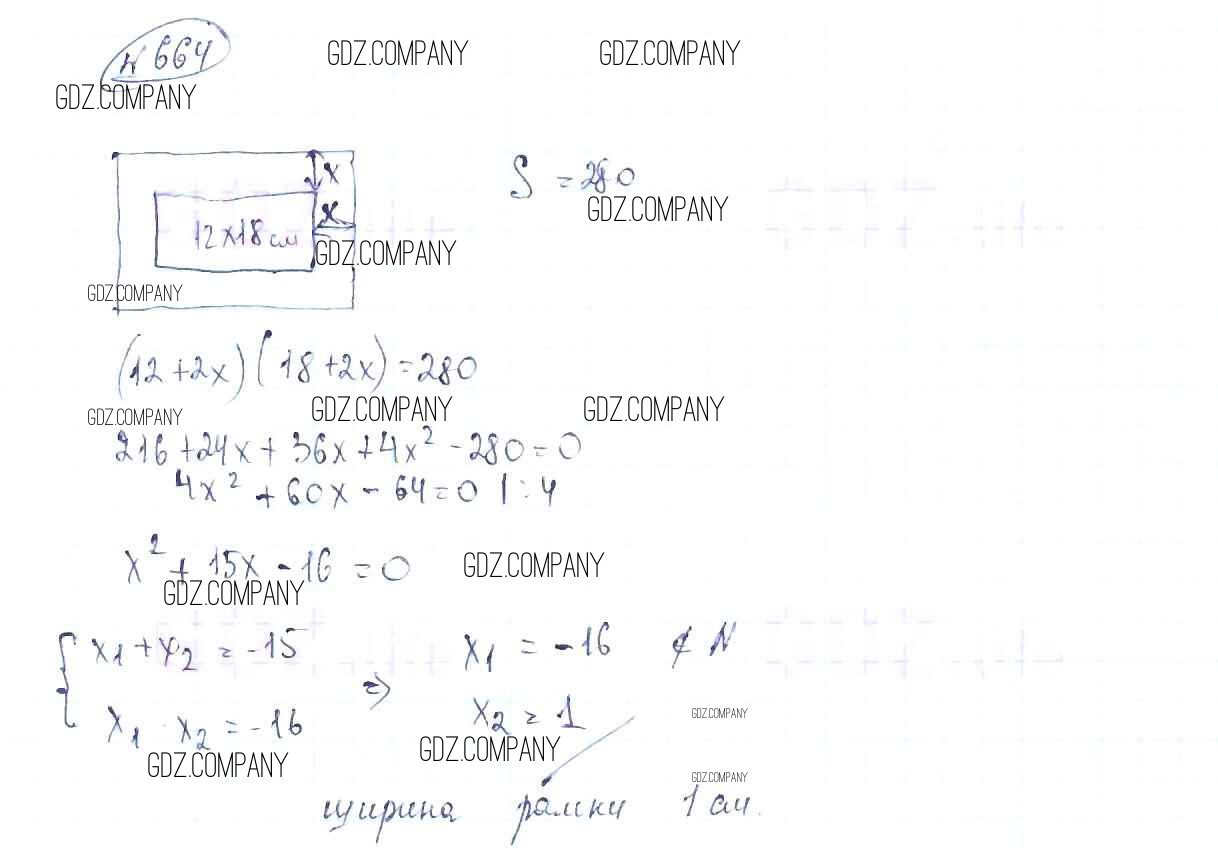 N 664
GDZ.COMPANY GDZ.COMPANY
GDZ.COMPANY
x
S = 280
x
GDZ.COMPANY
12x18 см
GDZ.COMPANY
GDZ.COMPANY
(12+2x)(18+2x)=280
GDZ.COMPANY GDZ.COMPANY GDZ.COMPANY
216+24x+36x+4x²-280=0
4x²+60x-64=0 |:4
x²+15x-16=0
GDZ.COMPANY
GDZ.COMPANY
{ x₁+x₂=-15
x₁·x₂=-16
=>
x₁=-16 ∉ N
x₂=1
GDZ.COMPANY
GDZ.COMPANY
GDZ.COMPANY
GDZ.COMPANY
ширина рамки 1 см.